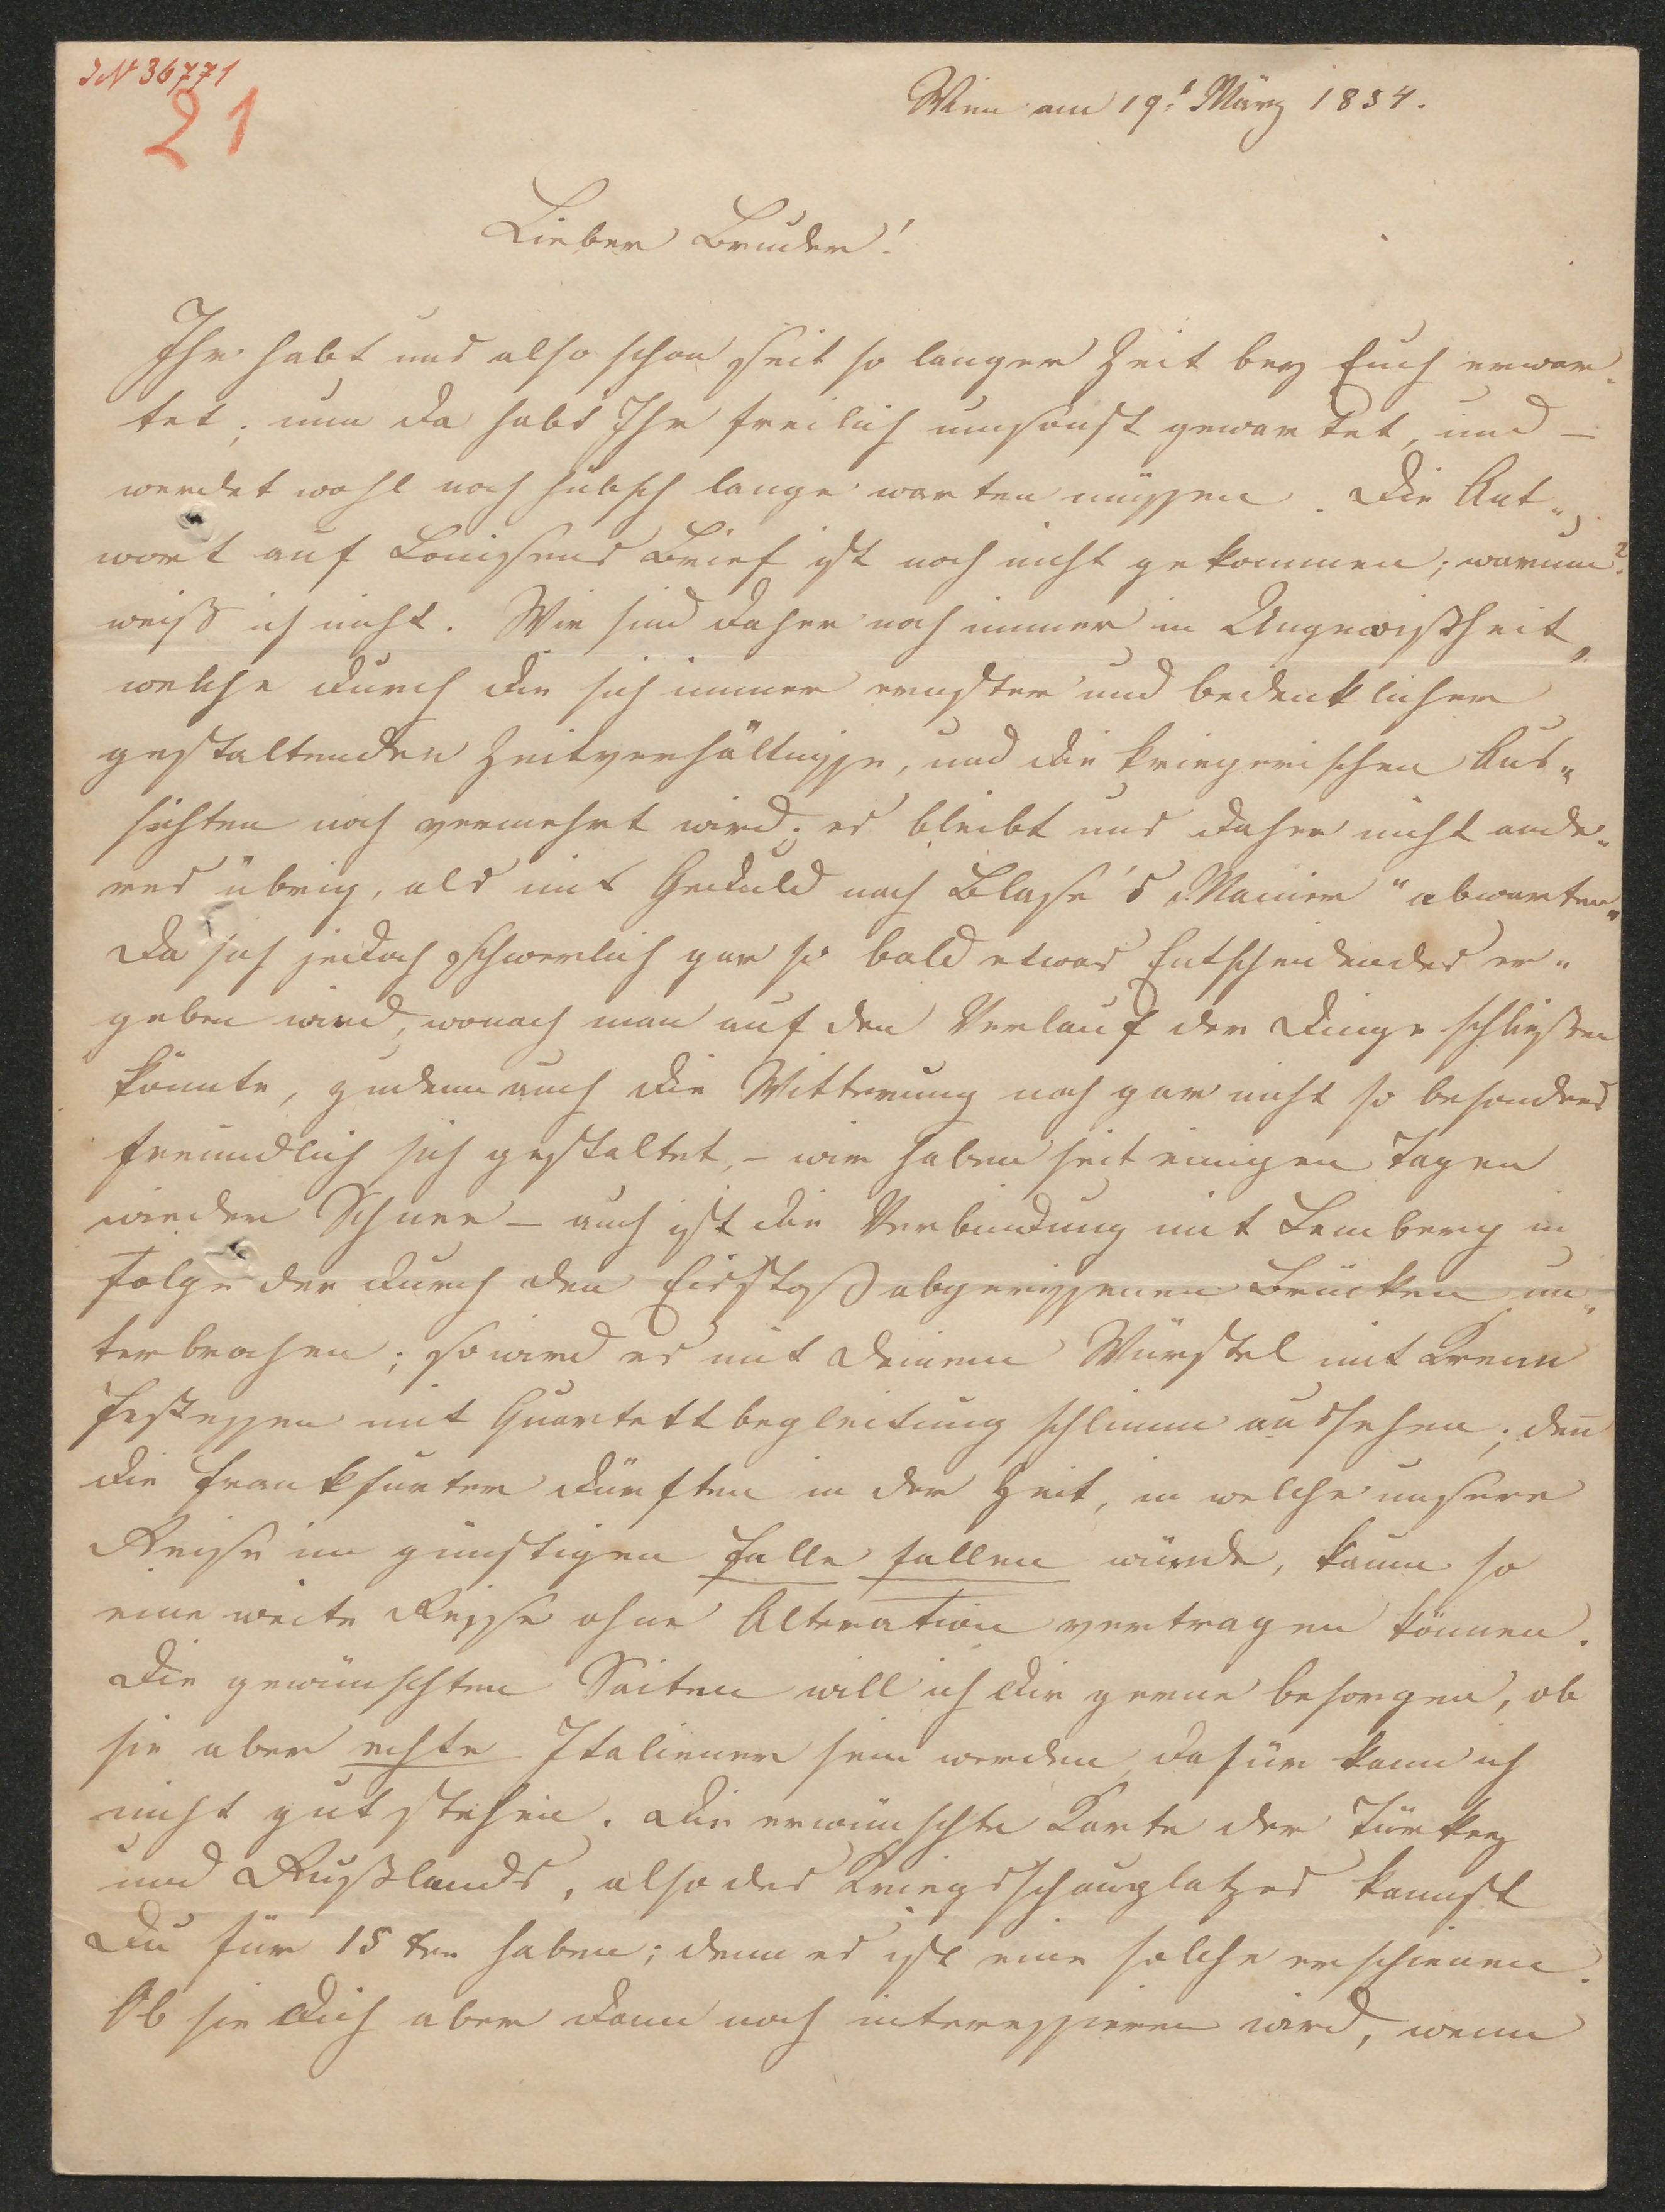 IN 36771
21
Wien am 19.t März 1854.
Lieber Bruder!
Ihr habt uns also schon seit so langer Zeit bey Euch erwar-
tet; nun da habt Ihr freilich umsonst gewartet, und –
werdet wohl noch hübsch lange warten müssen. Die Ant-
wort auf Louisens Brief ist noch nicht gekommen; warum?
weiß ich nicht. Wir sind daher noch immer in Ungewißheit,
welche durch die sich immer ernster und bedenklicher
gestaltenden Zeitverhältnisse, und die kriegerischen Aus-
sichten noch vermehrt wird; es bleibt uns daher nicht ande-
res übrig, als mit Geduld nach Blase's Manier "abwarten"
Da sich jedoch schwerlich gar so bald etwas Entscheidendes er-
geben wird, wonach man auf den Verlauf der Dinge schließen
könnte, zudem auch die Witterung noch gar nicht so besonders
freundlich sich gestaltet, – wir haben seit einigen Tagen
wieder Schnee – auch ist die Verbindung mit Lemberg in
Folge der durch den Eisstoß abgerissenen Brücken un-
terbrochen; so wird es mit Deinem Würstel mit Krenn
Festessen mit Quartettbegleitung schlimm aussehen; den̄
die Frankfurter dürften in der Zeit, in welche unsere
Reise im günstigen Falle fallen würde, kaum so
eine weite Reise ohne Alteration vertragen können.
Die gewünschten Saiten will ich Dir gerne besorgen, ob
sie aber echte Italiener sein werden, dafür kann ich
nicht gut stehen. Die erwünschte Karte der Türkey
und Rußlands, also des Kriegsschauplatzes kannst
Du für 15 xr haben; denn es ist eine solche erschienen.
Ob sie Dich aber dann noch interessieren wird, wenn